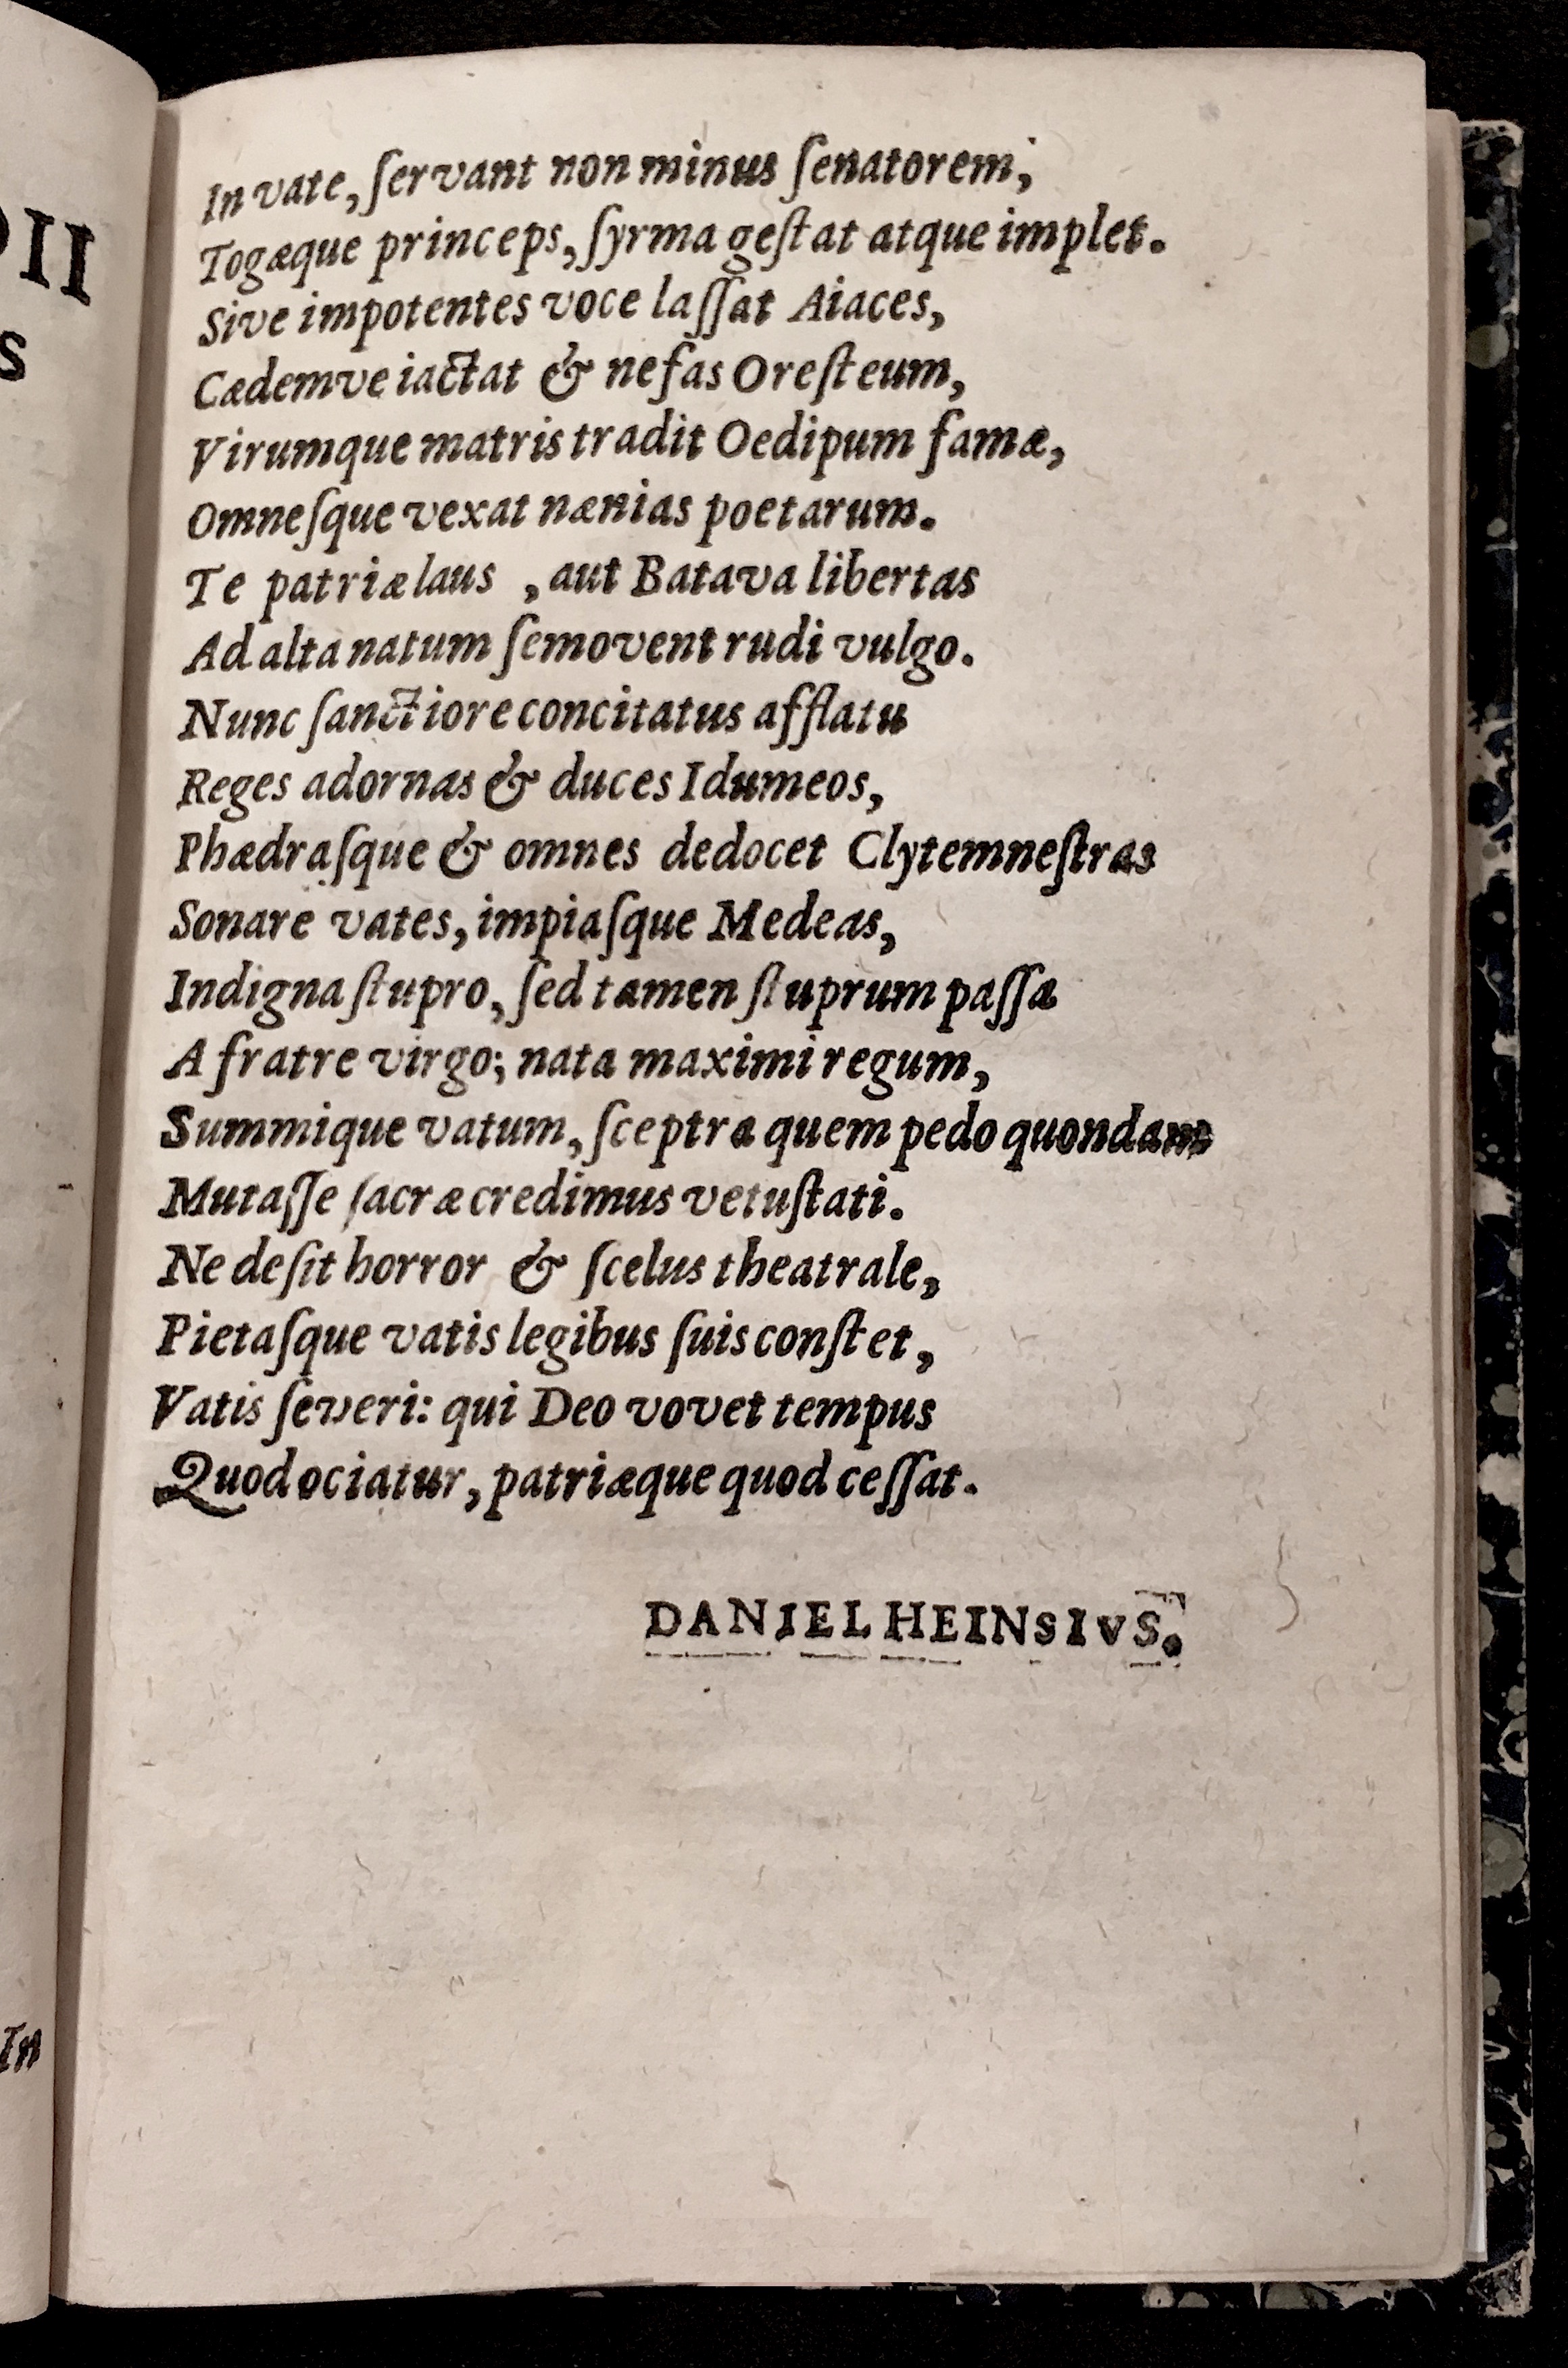 II
s
In
In vate, ſervant non minus ſenatorem;
Togæque princeps, ſyrma geſtat atque implet.
Sive impotentes voce laſſat Aiaces,
Cædemve iactat & nefas Oreſteum,
Virumque matris tradit Oedipum famæ,
Omneſque vexat nænias poetarum.
Te patriæ laus , aut Batava libertas
Ad alta natum ſemovent rudi vulgo.
Nunc ſanctiore concitatus afflatu
Reges adornas & duces Idumeos,
Phædraſque & omnes dedocet Clytemneſtras
Sonare vates, impiaſque Medeas,
Indigna ſtupro, ſed tamen ſtuprum paſſa
A fratre virgo; nata maximi regum,
Summique vatum, ſceptra quem pedo quondam
Mutaſſe ſacræ credimus vetuſtati.
Ne deſit horror & ſcelus theatrale,
Pietaſque vatis legibus ſuis conſtet,
Vatis ſeveri: qui Deo vovet tempus
Quod ociatur, patriæque quod ceſſat.
DANIEL HEINSIVS.